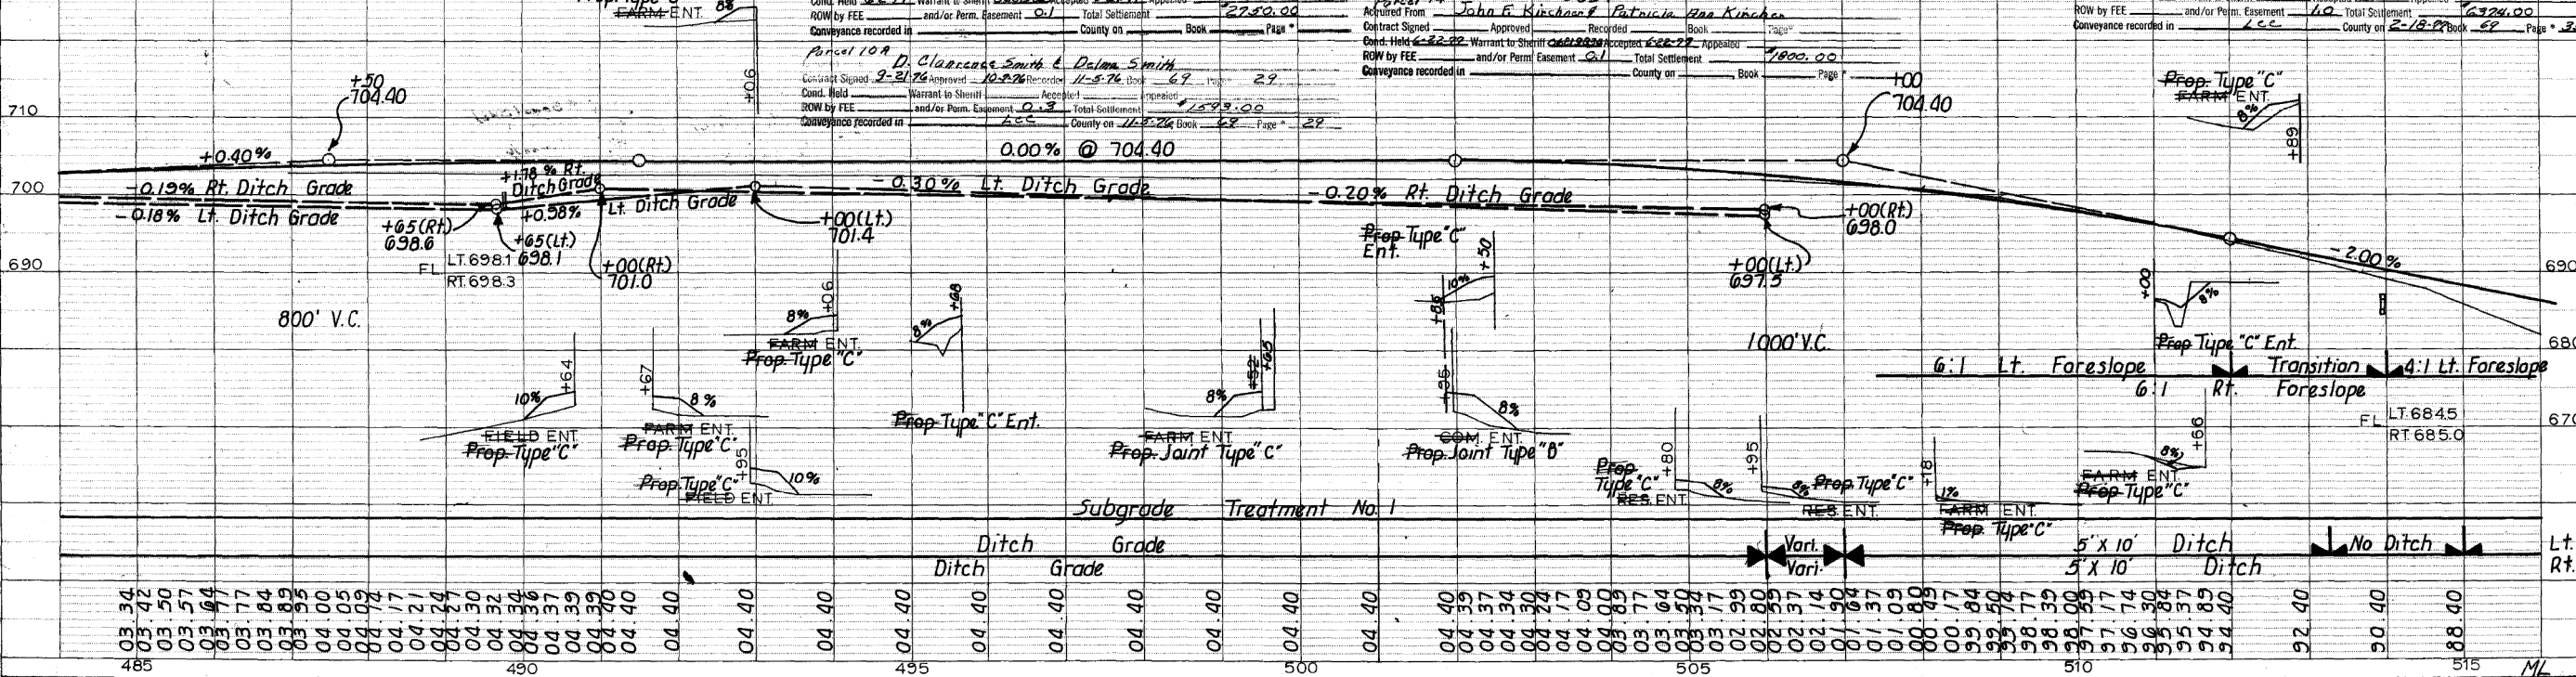 FARM ENT.
8%
+06
ROW by FEE and/or Perm. Easement 0.1 Total Settlement $2750.00
Conveyance recorded in County on Book Page
Parcel 10A
D. Clarence Smith & Delma Smith
Contract Signed 9-21-76 Approved 10-9-76 Recorded 11-5-76 Book 69 Page 29
Cond. Held Warrant to Sheriff Accepted Appealed
ROW by FEE and/or Perm. Easement 0.3 Total Settlement $1599.00
Conveyance recorded in Lee County on 11-5-76 Book 69 Page 29
Acquired From John E. Kirchner & Patricia Ann Kircher
Contract Signed Approved Recorded Book Page
Cond. Held 6-22-77 Warrant to Sheriff Accepted 6-22-77 Appealed
ROW by FEE and/or Perm. Easement 0.1 Total Settlement $1800.00
Conveyance recorded in County on Book Page
ROW by FEE and/or Perm. Easement 1.0 Total Settlement $6394.00
Conveyance recorded in Lee County on 2-18-77 Book 69 Page
+50
704.40
+00
704.40
Prop. Type "C"
FARM ENT.
8%
+89
710
+0.40%
0.00% @ 704.40
+1.78% Rt.
Ditch Grade
700
-0.19% Rt. Ditch Grade
-0.18% Lt. Ditch Grade
+0.98% Lt. Ditch Grade
-0.30% Lt. Ditch Grade
-0.20% Rt. Ditch Grade
+65(Rt.)
698.6
+65(Lt.)
698.1
+00(Rt.)
701.0
+00(Lt.)
701.4
+00(Rt.)
698.0
+00(Lt.)
697.5
-2.00%
690
690
FL
LT. 698.1
RT. 698.3
800' V.C.
1000' V.C.
+64
10%
FIELD ENT.
Prop. Type "C"
+67
8%
FARM ENT.
Prop. Type "C"
+95
10%
Prop. Type "C"
FIELD ENT.
+06
8%
FARM ENT.
Prop. Type "C"
+68
8%
Prop. Type "C" Ent.
+52
+65
8%
FARM ENT.
Prop. Joint Type "C"
Prop. Type "C"
Ent.
+50
10%
+86
+95
8%
COM. ENT.
Prop. Joint Type "B"
+80
8%
Prop
Type "C"
RES. ENT.
+95
8%
Prop Type "C"
RES. ENT.
+18
1%
FARM ENT.
Prop. Type "C"
+66
8%
FARM ENT.
Prop Type "C"
+00
8%
Prop Type "C" Ent.
680
6:1 Lt. Foreslope Transition 4:1 Lt. Foreslope
6:1 Rt. Foreslope
FL
LT. 684.5
RT. 685.0
670
Subgrade Treatment No. 1
Ditch Grade Vari. 5' X 10' Ditch No Ditch Lt.
Ditch Grade Vari. 5' X 10' Ditch Rt.
03.34 03.42 03.50 03.57 03.64 03.71 03.77 03.84 03.89 03.95 04.00 04.05 04.09 04.14 04.17 04.21 04.24 04.27 04.30 04.32 04.34 04.36 04.37 04.39 04.39 04.40 04.40 04.40 04.40 04.40 04.40 04.40 04.40 04.40 04.40 04.40 04.40 04.40 04.39 04.37 04.34 04.30 04.24 04.17 04.09 04.00 03.89 03.77 03.64 03.50 03.34 03.17 02.99 02.80 02.59 02.37 02.14 01.90 01.64 01.37 01.09 00.80 00.49 00.17 99.84 99.50 99.14 98.77 98.39 98.00 97.59 97.17 96.74 96.30 95.84 95.37 94.89 94.40 92.40 90.40 88.40
485 490 495 500 505 510 515 ML